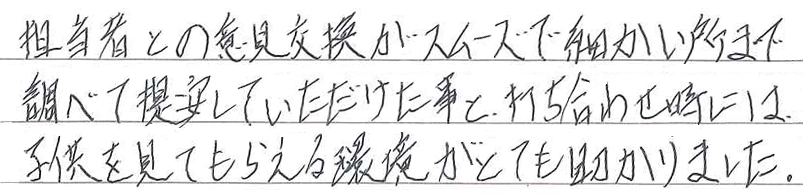 担当者との意見交換がスムーズで細かい所まで
調べて提案していただけた事と、打ち合わせ時には、
子供を見てもらえる環境がとても助かりました。